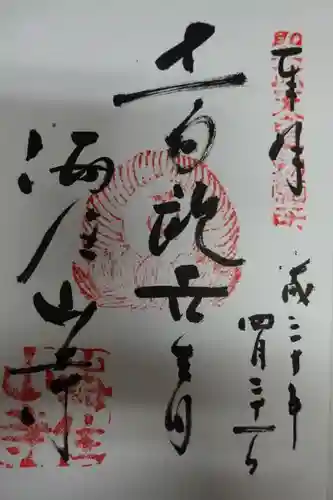 奉拝
平成三十年
四月二十一日
十一面観世音
海住山寺